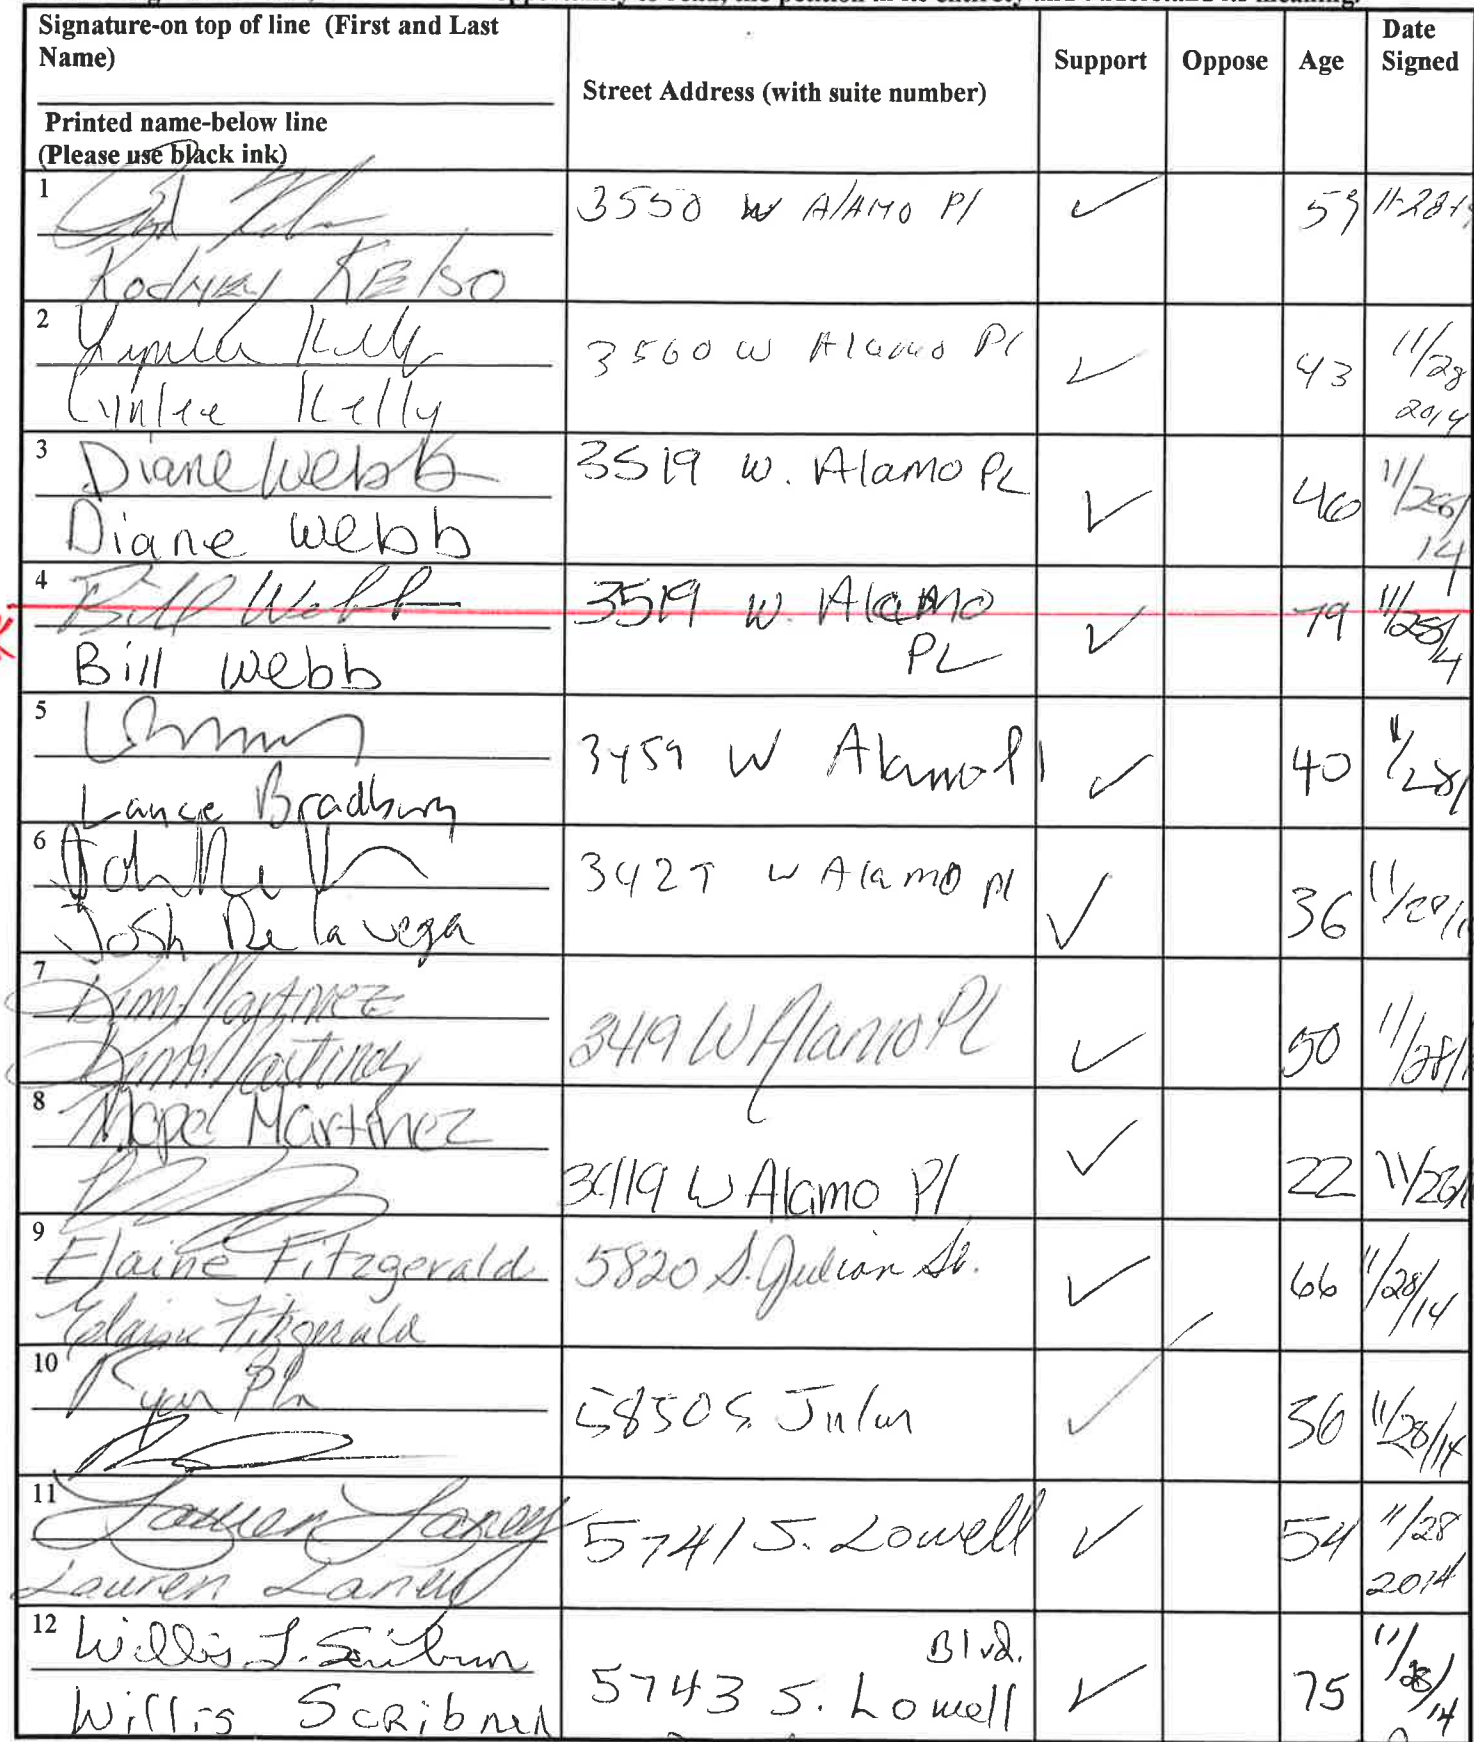 Signature-on top of line (First and Last Name)
Printed name-below line
(Please use black ink)
Street Address (with suite number)
Support
Oppose
Age
Date Signed
1
Rodney Kelso
3550 W Alamo Pl
✓
59
2
Cynlee Kelly
3560 W Alamo Pl
✓
43
11/28
2014
3
Diane Webb
Diane Webb
3519 W. Alamo PL
✓
46
11/28/
14
4
Bill Webb
Bill Webb
3519 W. Alamo
PL
✓
79
5
Lance Bradbury
3459 W Alamo Pl
✓
40
11/28/
6
Josh De la vega
W Alamo pl
✓
36
7
Kim Martinez
Kim Martinez
3419 W Alamo Pl
✓
50
11/28/1
8
Martinez
3419 W Alamo Pl
✓
22
9
Elaine Fitzgerald
Elaine Fitzgerald
5820 S. Julian St.
✓
66
11/28/14
10
Ryan
5850 S.
✓
36
11/28/14
11
Lauren Laney
Lauren Laney
5741 S. Lowell
✓
54
11/28
2014
12
Willis
Willis Scribner
Blvd.
5743 S. Lowell
✓
75
11/28/14